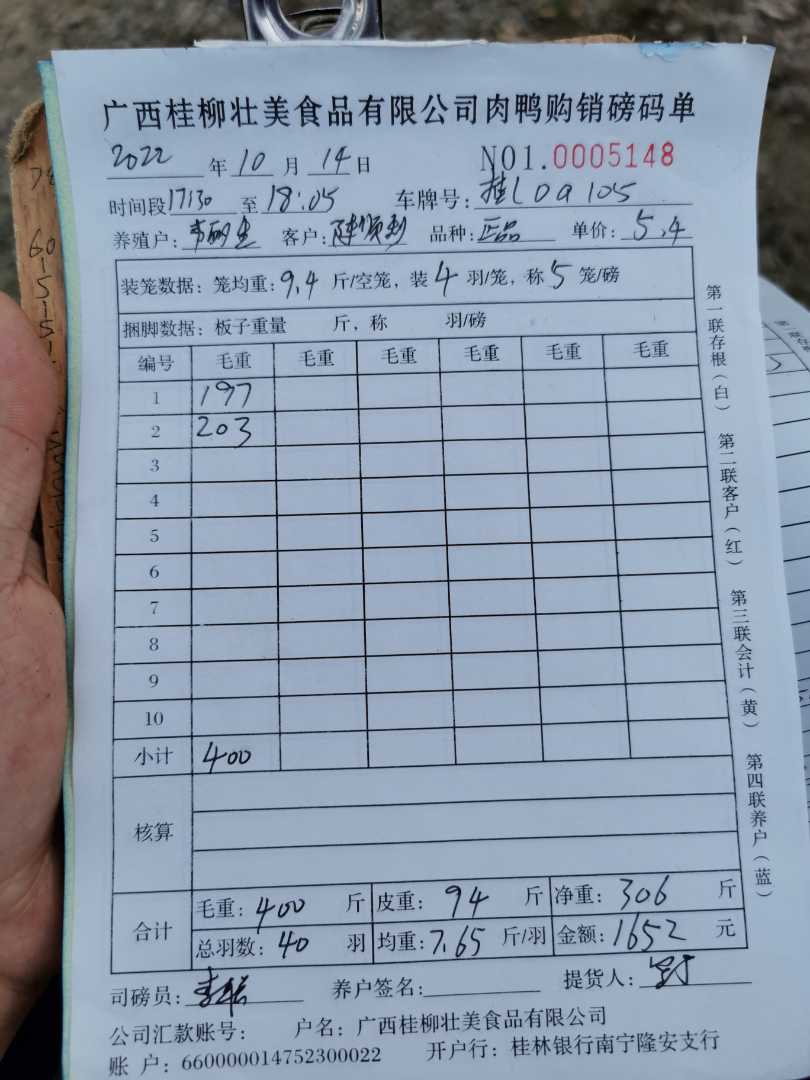 广西桂柳壮美食品有限公司肉鸭购销磅码单
2022 年 10 月 14 日 NO1.0005148
时间段 17:30 至 18:05 车牌号: 桂L09105
养殖户: 客户: 陈顺利 品种: 正品 单价: 5.4
装笼数据: 笼均重: 9.4 斤/空笼, 装 4 羽/笼, 称 5 笼/磅
捆脚数据: 板子重量 斤, 称 羽/磅
编号 毛重 毛重 毛重 毛重 毛重 毛重
1 197
2 203
3
4
5
6
7
8
9
10
小计 400
核算
合计 毛重: 400 斤 皮重: 94 斤 净重: 306 斤
总羽数: 40 羽 均重: 7.65 斤/羽 金额: 1652 元
司磅员: 养户签名: 提货人:
公司汇款账号: 户名: 广西桂柳壮美食品有限公司
账 户: 660000014752300022 开户行: 桂林银行南宁隆安支行
第一联存根(白) 第二联客户(红) 第三联会计(黄) 第四联养户(蓝)